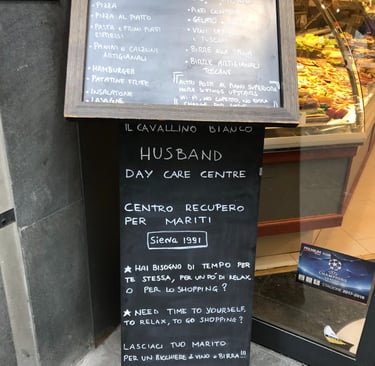 PIZZA
PIZZA AL PIATTO
PASTA E PRIMI PIATTI
PANINI E CALZONI
ARTIGIANALI
HAMBURGER
PATATINE FRITTE
INSALATONE
LASAGNE
GELATO
VINI
TOSCANI
BIRRE ALLA SPINA
BIRRE ARTIGIANALI
TOSCANE
IL CAVALLINO BIANCO
HUSBAND
DAY CARE CENTRE
CENTRO RECUPERO
PER MARITI
Siena 1991
★ HAI BISOGNO DI TEMPO PER
TE STESSA, PER UN PO' DI RELAX
O PER LO SHOPPING?
★ NEED TIME TO YOURSELF,
TO RELAX, TO GO SHOPPING?
LASCIACI TUO MARITO
PER UN BICCHIERE DI VINO O BIRRA!!!
PREMIUM
UEFA
CHAMPIONS
LEAGUE
STAGIONE 2017-2018